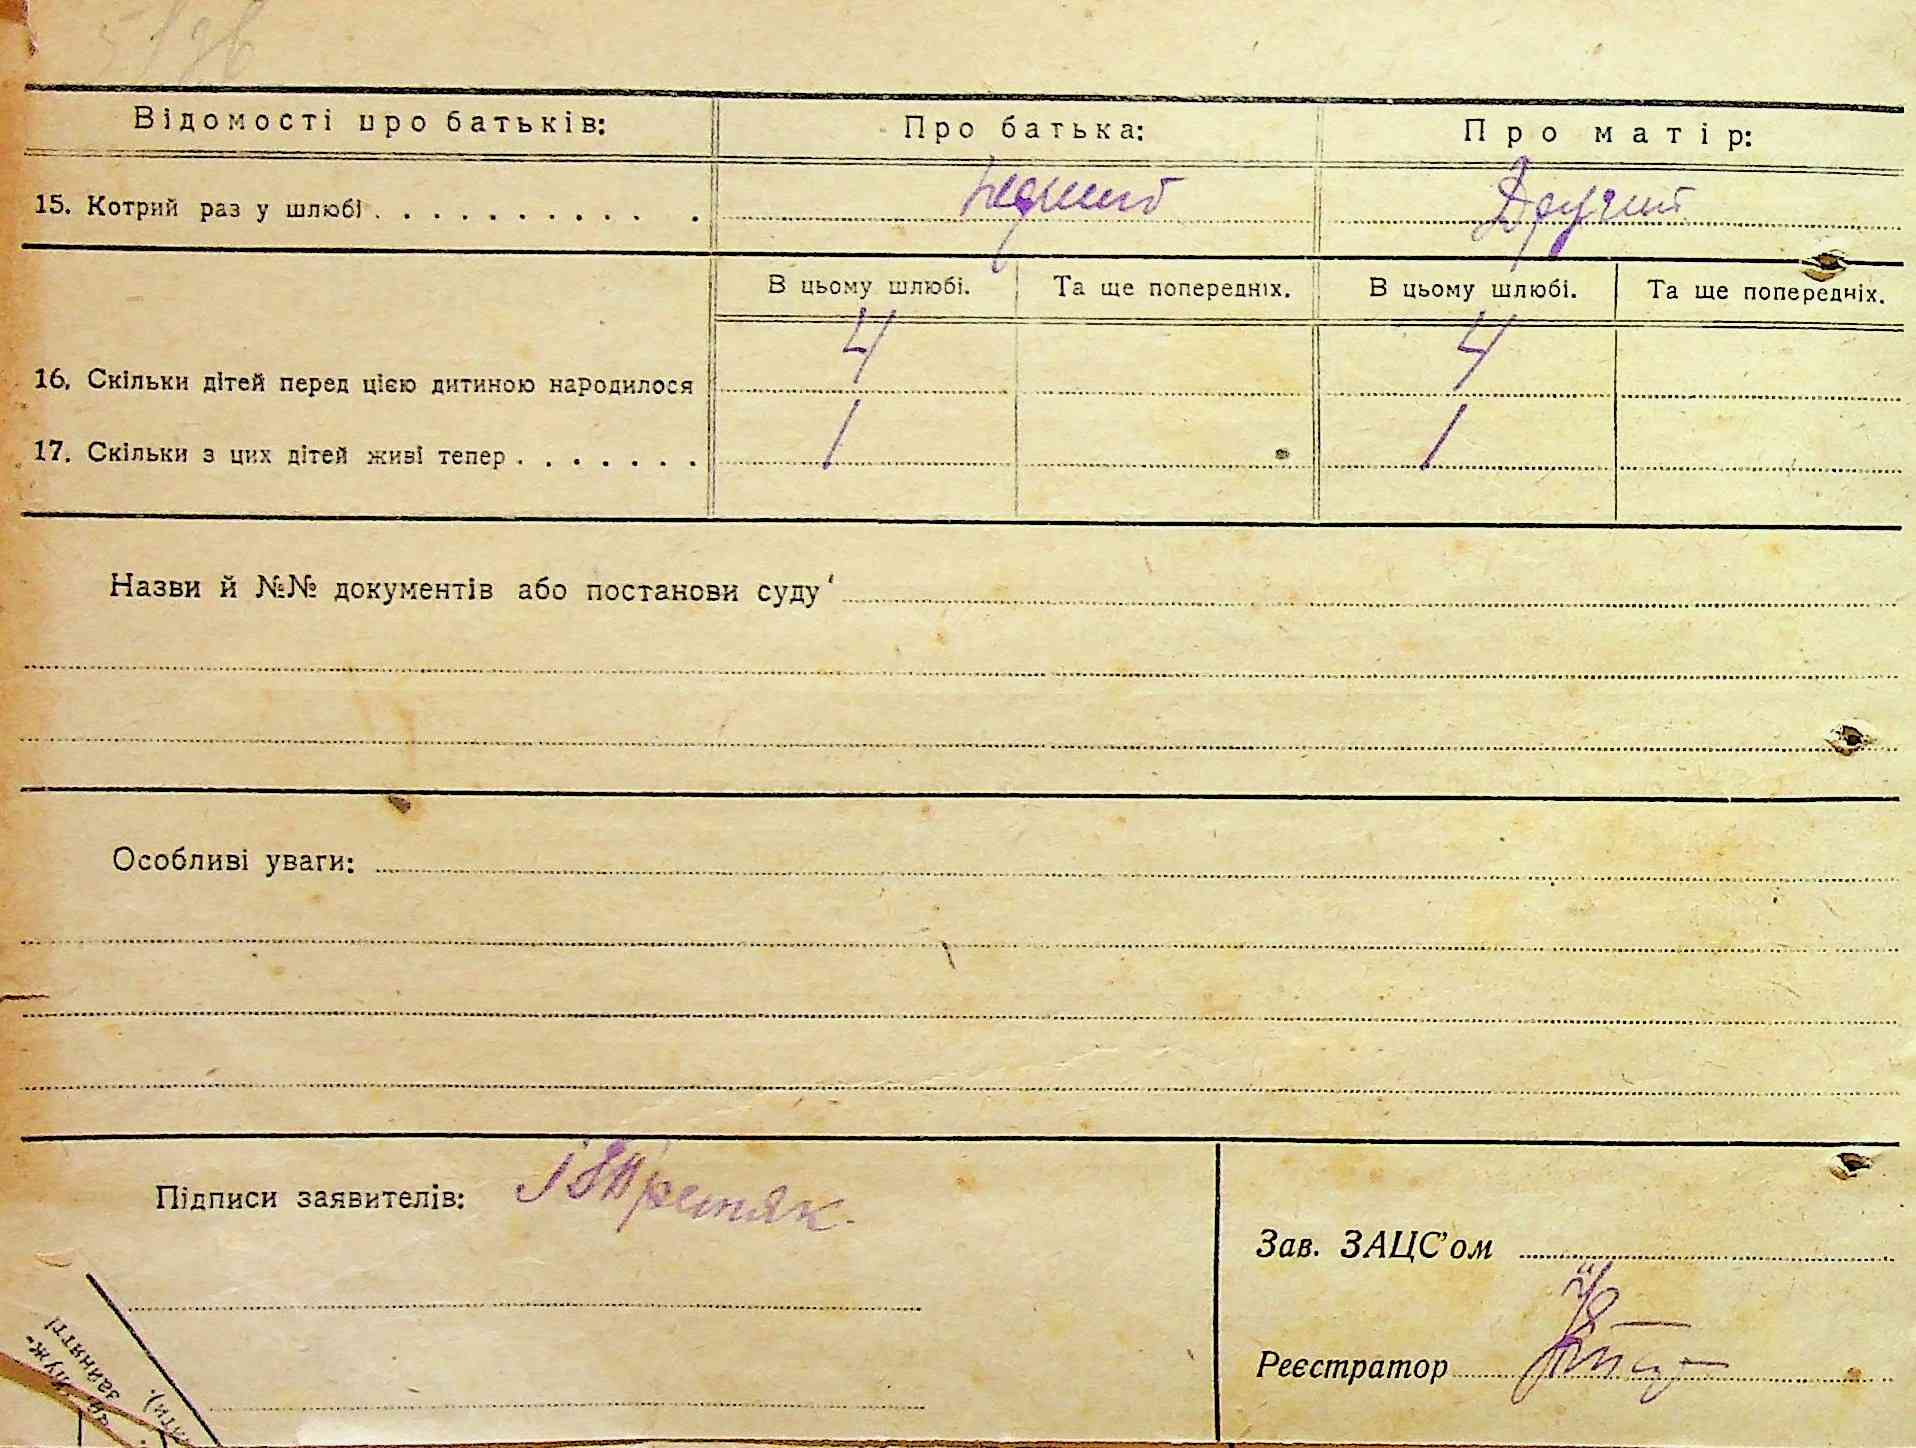 Відомості про батьків: Про батька: Про матір:
15. Котрий раз у шлюбі . . . . . . . . . . . . Другий
В цьому шлюбі. Та ще попередніх. В цьому шлюбі. Та ще попередніх.
16. Скільки дітей перед цією дитиною народилося 4 4
17. Скільки з цих дітей живі тепер . . . . . . . 1 1
Назви й №№ документів або постанови суду
Особливі уваги:
Підписи заявителів: Третяк
Зав. ЗАЦС'ом
Реєстратор
зайняті